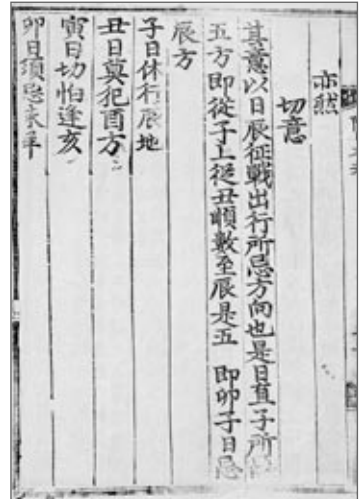 亦然
切意
其意以日辰征戰出行所忌方向也是日直子所
五方即從子上從丑順數至辰是五 即卯子日忌
辰方
子日休行辰地
丑日莫犯酉方
寅日切怕逢亥
卯日須忌未羊